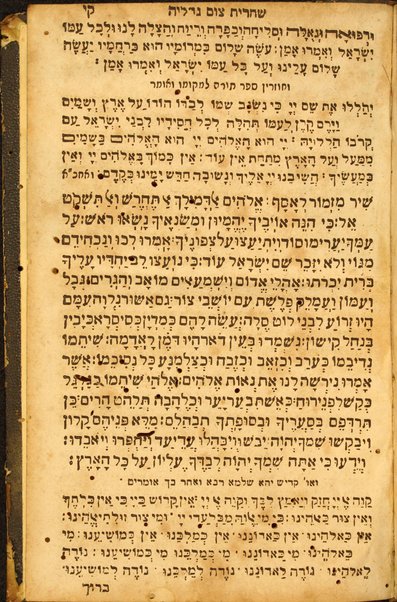 שחרית צום גדליה קי
ורפואה וגאולה וסליחה וכפרה וריוח והצלה לנו ולכל עמו
ישראל ואמרו אמן: עשה שלום במרומיו הוא ברחמיו יעשה
שלום עלינו ועל כל עמו ישראל ואמרו אמן:
ומחזירין ספר תורה למקומו ואומר
יהללו את שם יי כי נשגב שמו לבדו הודו על ארץ ושמים
וירם קרן לעמו תהלה לכל חסידיו לבני ישראל עם
קרובו הללויה: יי הוא האלהים יי הוא האלהים בשמים
ממעל ועל הארץ מתחת אין עוד: אין כמוך באלהים יי ואין
כמעשיך: השיבנו יי אליך ונשובה חדש ימינו כקדם: ואחכ"א
שיר מזמור לאסף: אלהים אל דמי לך אל תחרש ואל תשקט
אל: כי הנה אויביך יהמיון ומשנאיך נשאו ראש: על
עמך יערימו סוד ויתיעצו על צפוניך: אמרו לכו ונכחידם
מגוי ולא יזכר שם ישראל עוד: כי נועצו לב יחדיו עליך
ברית יכרתו: אהלי אדום וישמעאלים מואב והגרים: גבל
ועמון ועמלק פלשת עם יושבי צור: גם אשור נלוה עמם
היו זרוע לבני לוט סלה: עשה להם כמדין כסיסרא כיבין
בנחל קישון: נשמדו בעין דאר היו דמן לאדמה: שיתמו
נדיבמו כערב וכזאב וכזבח וכצלמנע כל נסיכמו: אשר
אמרו נירשה לנו את נאות אלהים: אלהי שיתמו כגלגל
כקש לפני רוח: כאש תבער יער וכלהבה תלהט הרים: כן
תרדפם בסעריך ובסופתך תבהלם: מלא פניהם קלון
ויבקשו שמך יהוה: יבשו ויבהלו עדי עד ויחפרו ויאבדו:
וידעו כי אתה שמך יהוה לבדך עליון על כל הארץ:
ואו' קדיש יהא שלמא רבא ואחר כך אומרים
קוה אל יי חזק ויאמץ לבך וקוה אל יי אין קדוש כיי כי אין בלתך
ואין צור כאלהינו: כי מי אלוה מבלעדי יי ומי צור זולתי אלהינו:
אין כאלהינו אין כאדוננו אין כמלכנו אין כמושיענו: מי
כאלהינו מי כאדוננו מי כמלכנו מי כמושיענו: נודה
לאלהינו נודה לאדוננו נודה למלכנו נודה למושיענו
ברוך